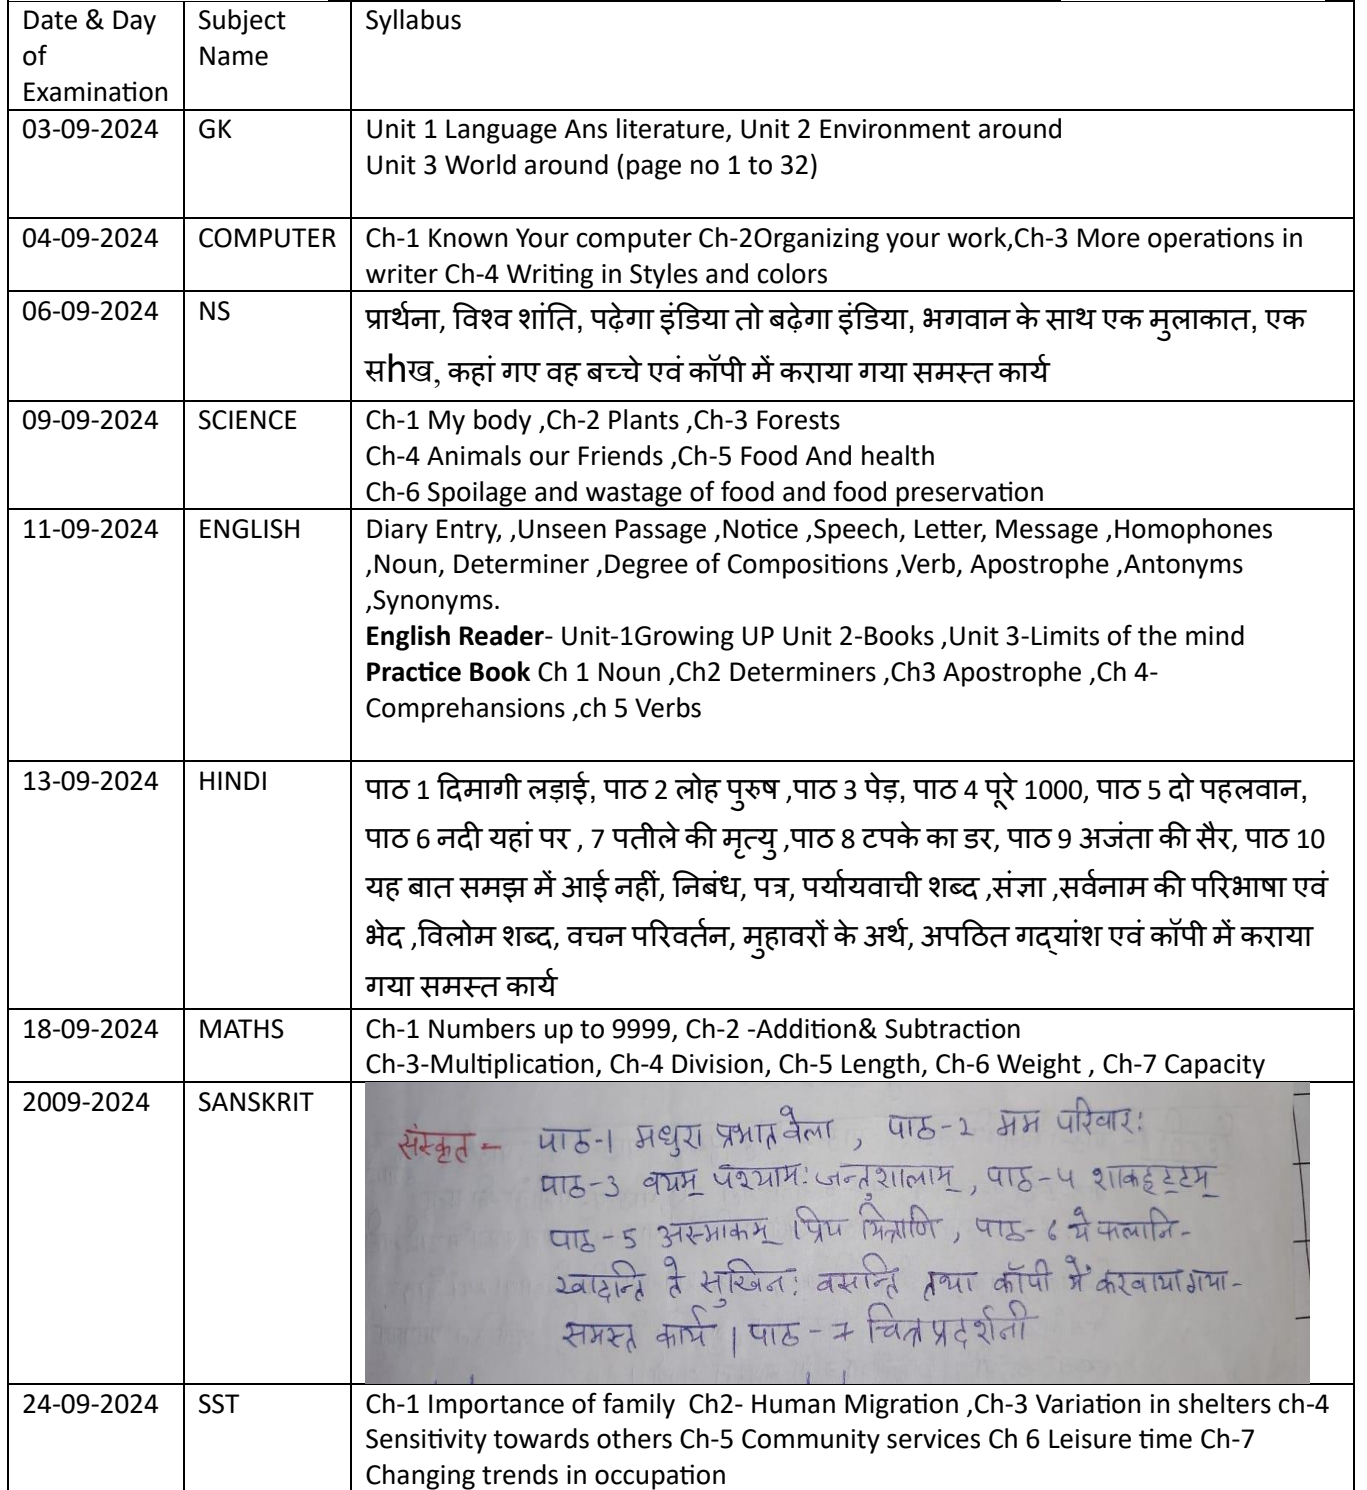 Date & Day of Examination | Subject Name | Syllabus
03-09-2024 | GK | Unit 1 Language Ans literature, Unit 2 Environment around
Unit 3 World around (page no 1 to 32)
04-09-2024 | COMPUTER | Ch-1 Known Your computer Ch-2Organizing your work,Ch-3 More operations in
writer Ch-4 Writing in Styles and colors
06-09-2024 | NS | प्रार्थना, विश्व शांति, पढ़ेगा इंडिया तो बढ़ेगा इंडिया, भगवान के साथ एक मुलाकात, एक
सhख, कहां गए वह बच्चे एवं कॉपी में कराया गया समस्त कार्य
09-09-2024 | SCIENCE | Ch-1 My body ,Ch-2 Plants ,Ch-3 Forests
Ch-4 Animals our Friends ,Ch-5 Food And health
Ch-6 Spoilage and wastage of food and food preservation
11-09-2024 | ENGLISH | Diary Entry, ,Unseen Passage ,Notice ,Speech, Letter, Message ,Homophones
,Noun, Determiner ,Degree of Compositions ,Verb, Apostrophe ,Antonyms
,Synonyms.
English Reader- Unit-1Growing UP Unit 2-Books ,Unit 3-Limits of the mind
Practice Book Ch 1 Noun ,Ch2 Determiners ,Ch3 Apostrophe ,Ch 4-
Comprehansions ,ch 5 Verbs
13-09-2024 | HINDI | पाठ 1 दिमागी लड़ाई, पाठ 2 लोह पुरुष ,पाठ 3 पेड़, पाठ 4 पूरे 1000, पाठ 5 दो पहलवान,
पाठ 6 नदी यहां पर , 7 पतीले की मृत्यु ,पाठ 8 टपके का डर, पाठ 9 अजंता की सैर, पाठ 10
यह बात समझ में आई नहीं, निबंध, पत्र, पर्यायवाची शब्द ,संज्ञा ,सर्वनाम की परिभाषा एवं
भेद ,विलोम शब्द, वचन परिवर्तन, मुहावरों के अर्थ, अपठित गद्यांश एवं कॉपी में कराया
गया समस्त कार्य
18-09-2024 | MATHS | Ch-1 Numbers up to 9999, Ch-2 -Addition& Subtraction
Ch-3-Multiplication, Ch-4 Division, Ch-5 Length, Ch-6 Weight , Ch-7 Capacity
2009-2024 | SANSKRIT | संस्कृत - पाठ-1 मधुरा प्रभातवेला , पाठ-2 मम परिवारः
पाठ-3 वयम् पश्यामः जन्तुशालाम् , पाठ-4 शाकहट्टम्
पाठ-5 अस्माकम् प्रिय मित्राणि , पाठ-6 ये फलानि-
खादन्ति ते सुखिनः वसन्ति तथा कॉपी में करवाया गया-
समस्त कार्य | पाठ-7 चित्रप्रदर्शनी
24-09-2024 | SST | Ch-1 Importance of family Ch2- Human Migration ,Ch-3 Variation in shelters ch-4
Sensitivity towards others Ch-5 Community services Ch 6 Leisure time Ch-7
Changing trends in occupation